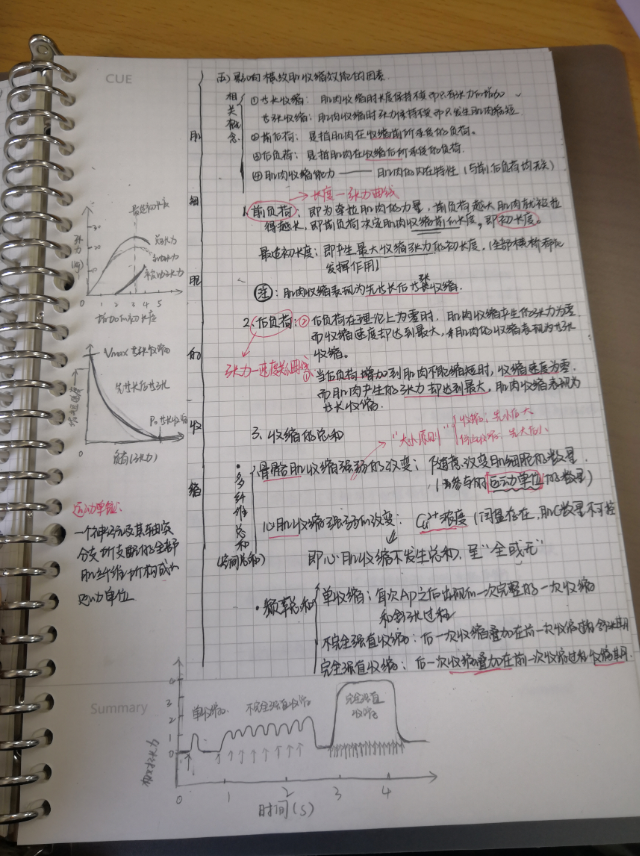 CUE
(五)影响横纹肌收缩效能的因素
相关概念
①等长收缩：肌肉收缩时长度保持不变而只有张力的增加
等张收缩：肌肉收缩时张力保持不变而只发生肌肉缩短
②前负荷：是指肌肉在收缩前所承受的负荷。
③后负荷：是指肌肉在收缩后所承受的负荷.
④肌肉收缩能力——肌肉的内在特性（与前后负荷均无关）
→长度-张力曲线
1.前负荷：即为牵拉肌肉的力量，前负荷越大肌肉就被拉
得越长，即前负荷决定肌肉收缩前的长度，即初长度。
最适初长度：即产生最大收缩张力的初长度，
发挥作用)
注：肌肉收缩表现为先等长后等张收缩.
2.后负荷：②后负荷在理论上为零时，肌肉收缩产生的张力为零
而收缩速度却达到最大，肌肉的收缩表现为等张
收缩。
张力-速度关系曲线
①当后负荷增加到肌肉不能缩短时，收缩速度为零
而肌肉产生的张力却达到最大，肌肉收缩表现为
等长收缩.
3.收缩的总和
"大小原则"
收缩：先小后大
先大后小
·多纤维总和(空间总和)
骨骼肌收缩强弱的改变：可随意改变肌细胞的数量
(参与的运动单位的数量)
心肌收缩强弱的改变：Ca²⁺浓度(同量存在，肌C数量不可变
即心肌收缩不发生总和，呈"全或无"
·频率总和
单收缩：每次AP之后出现的一次完整的一次收缩
和舒张过程
不完全强直收缩：后一次收缩叠加在前一次收缩过程舒张期
完全强直收缩：后一次收缩叠加在前一次收缩过程收缩期
肌细胞的收缩
最适初长度
总张力
被动张力
张力
(g)
1 2 3 4 5
肌肉初长度
Vmax 等张收缩
先等长后等张
P₀等长收缩
负荷(张力)
运动单位：
一个神经元及其轴突
分支所支配的全部
肌纤维所构成的
运动单位
Summary
单收缩
不完全强直收缩
完全强直收缩
4
3
2
1
0
0 1 2 3 4
时间(s)